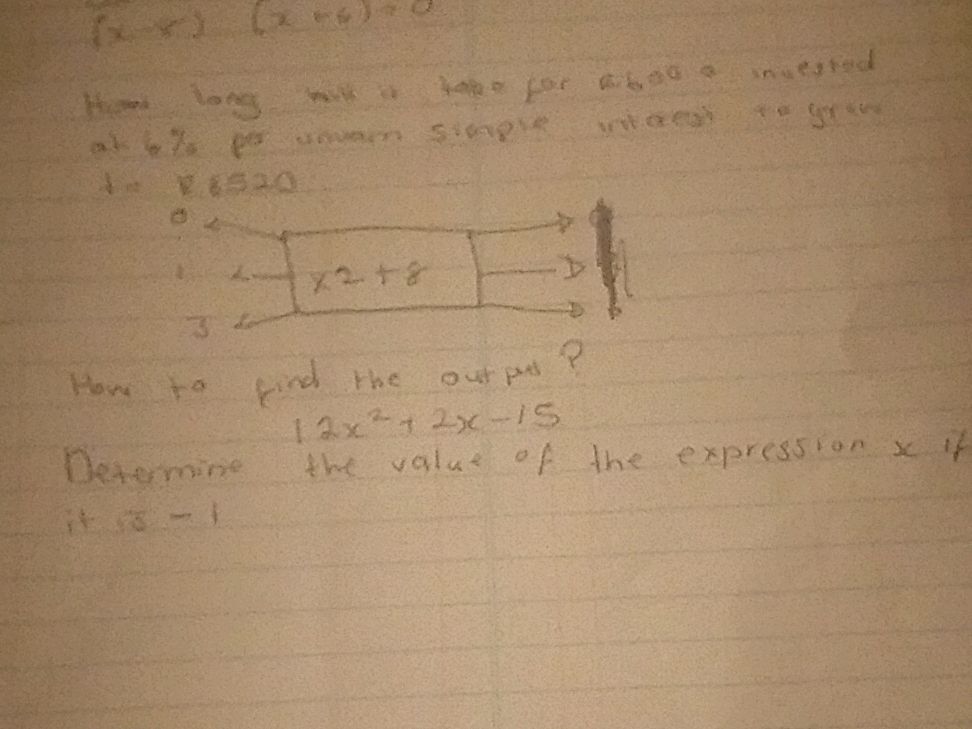 (x
(x + 6) = 0
long it for invested
at 6% per simple interest to grow
to R 6520
0
1 x2+8
3
How to find the output?
12x² + 2x - 15
Determine the value of the expression x if
it is - 1